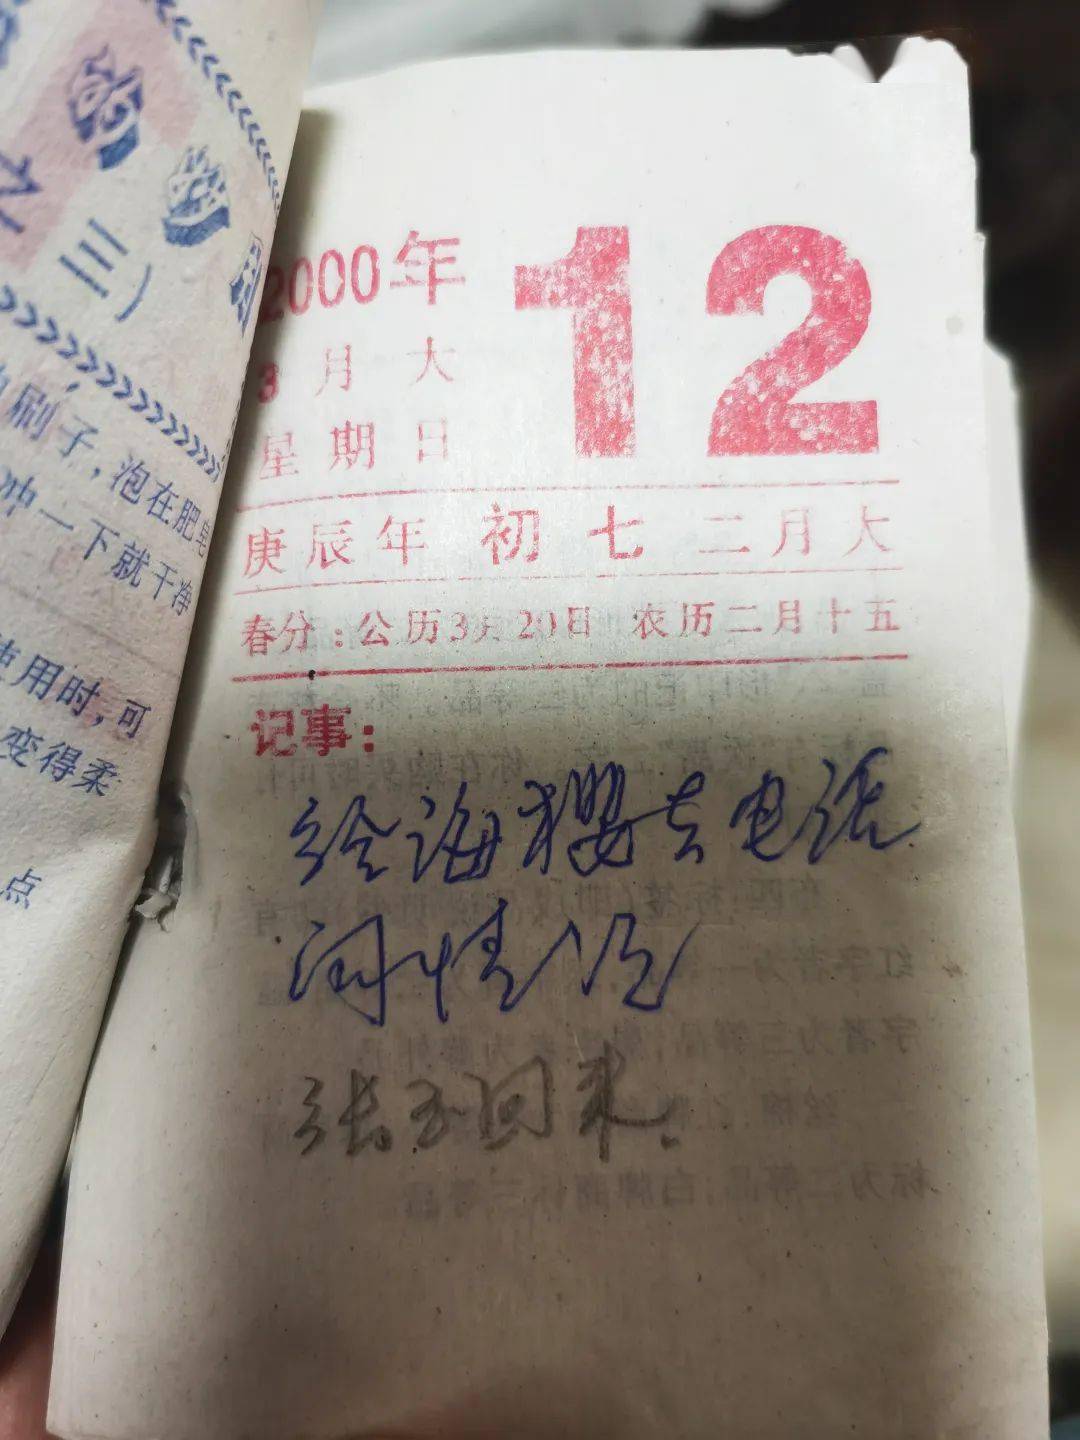 之三）
刷子，泡在肥皂
冲一下就干净
使用时，可
变得柔
点
2000年
3月大
星期日
12
庚辰年 初七 二月大
春分：公历3月20日 农历二月十五
记事：
给海樱去电话
问情况
张玉回来.